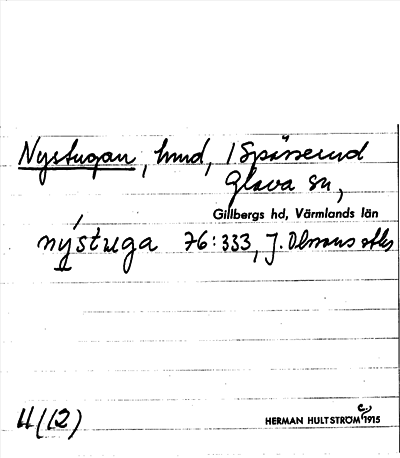 Nystugan, hmd, i Spässerud
Glava sn,
Gillbergs hd, Värmlands län
nýstuga 76:333, J. Olssons
U (12)
HERMAN HULTSTRÖM 1915